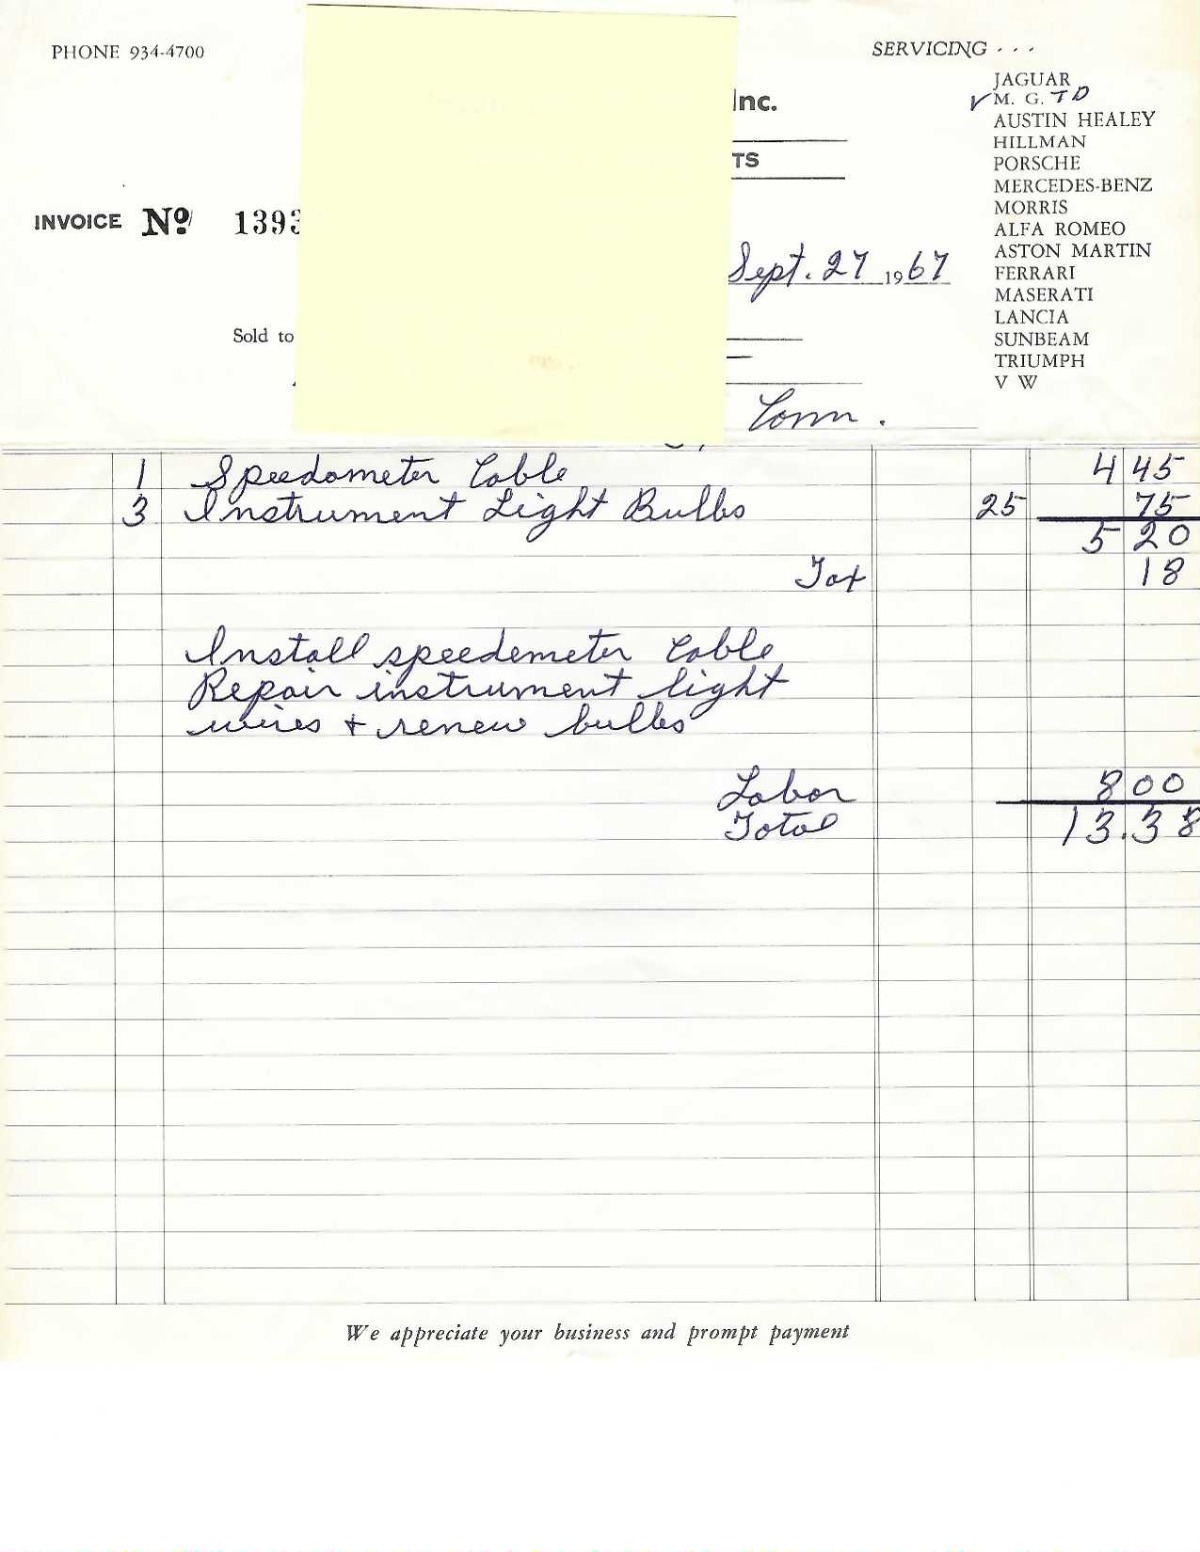 PHONE 934-4700
SERVICING . . .
Inc.
TS
JAGUAR
✓ M. G. TD
AUSTIN HEALEY
HILLMAN
PORSCHE
MERCEDES-BENZ
MORRIS
ALFA ROMEO
ASTON MARTIN
FERRARI
MASERATI
LANCIA
SUNBEAM
TRIUMPH
V W
INVOICE Nº 1393
Sept. 27 1967
Sold to
Conn.
1 Speedometer Cable 4 45
3 Instrument Light Bulbs 25 75
5 20
Tax 18
Install speedemeter Cable
Repair instrument light
wires + renew bulbs
Labor 8 00
Total 13.38
We appreciate your business and prompt payment